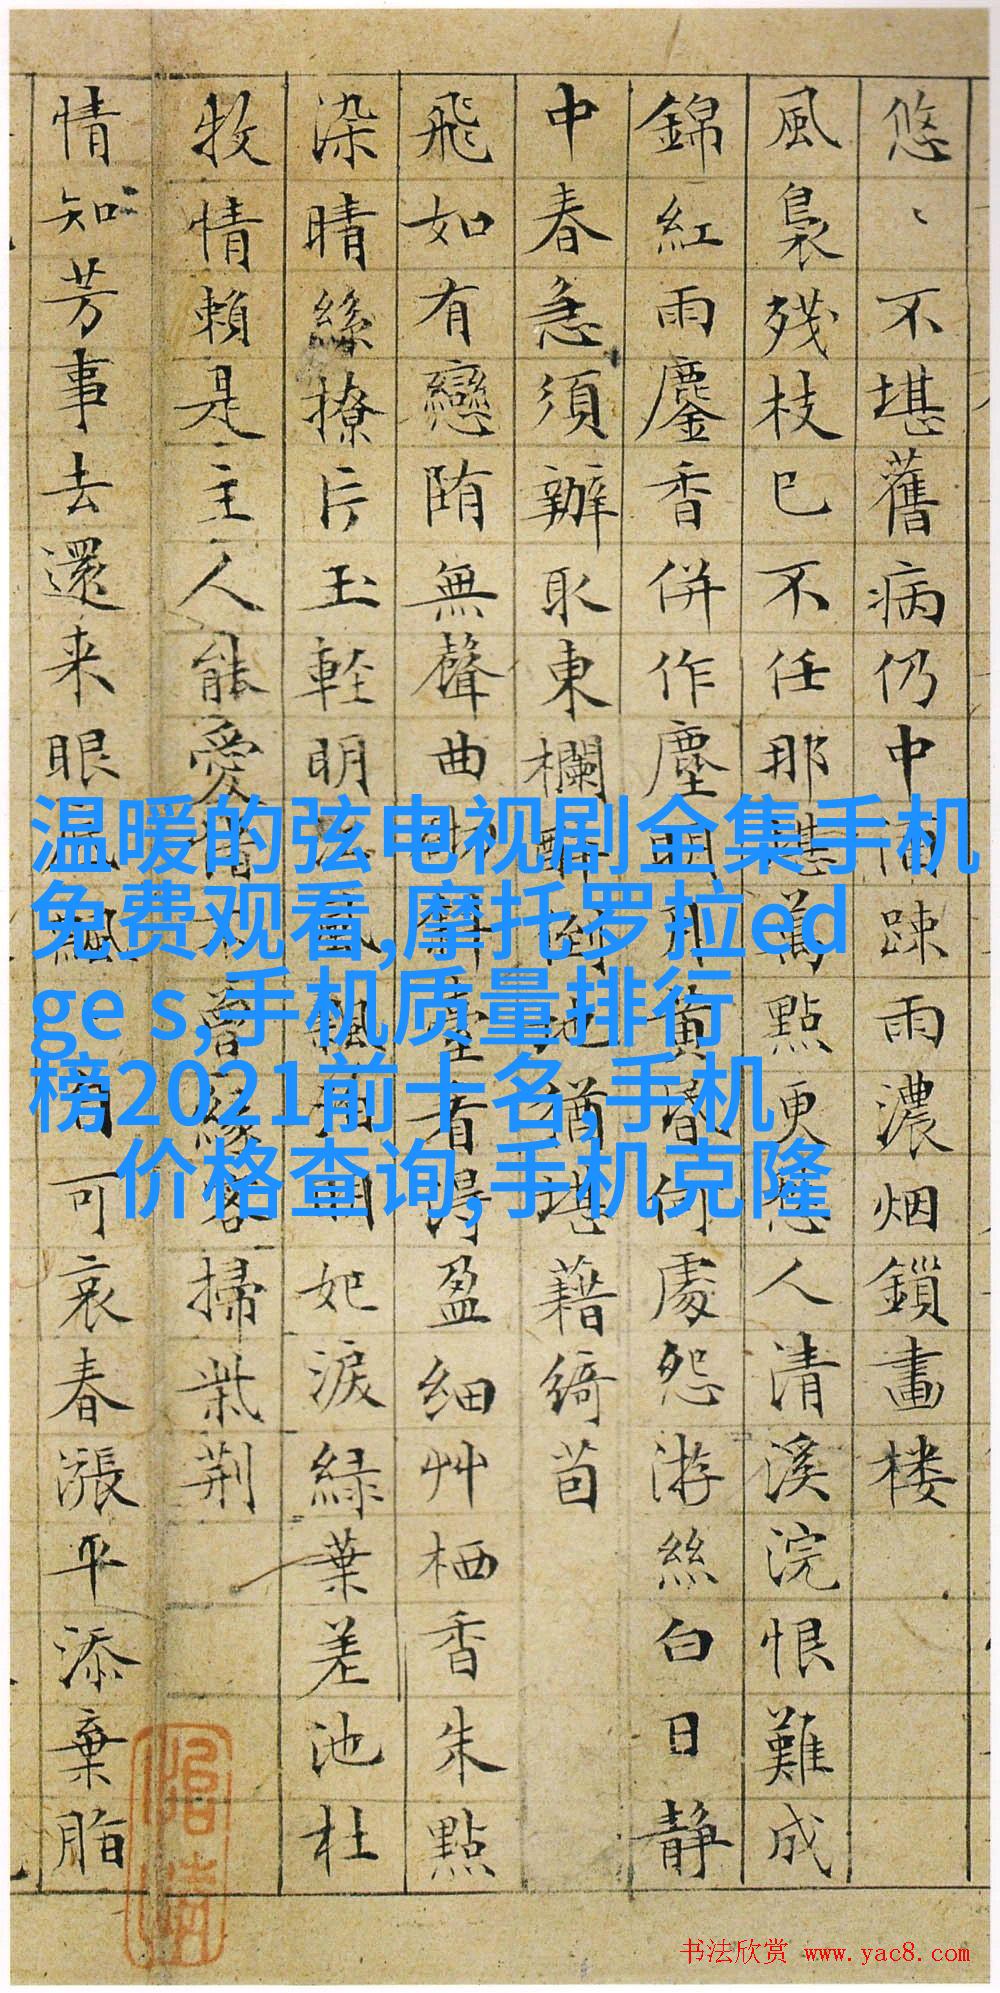 悠、不堪舊病仍中酒踈雨濃烟鎖畫楼
風裊残枝已不任那堪萬點更愁人清溪浣恨難成
錦紅雨鏖香併作塵明月黃昏何處怨游絲白日静
中春急須辦取東欄醉倒地猶堪藉綺茵
飛如有戀陏無聲曲砌斜臺看得盈細艸栖香朱點
染晴絲撩片玉輕明風飄妃淚緑葉差池杜
牧情賴是主人能愛惜不曾緣客掃柴荆
情知芳事去還来眼底飄可哀春漲平添棄脂
温暖的弦电视剧全集手机
免费观看,摩托罗拉ed
ge s,手机质量排行
榜2021前十名,手机
价格查询,手机克隆
书法欣赏 www.yac8.com